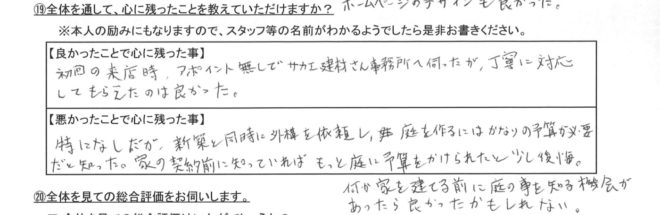 ホームページのデザインも良かった。
⑲全体を通して、心に残ったことを教えていただけますか?
※本人の励みにもなりますので、スタッフ等の名前がわかるようでしたら是非お書きください。
【良かったことで心に残った事】
初回の来店時、アポイント無しでサカエ建材さん事務所へ伺ったが、丁寧に対応
してもらえたのは良かった。
【悪かったことで心に残った事】
特になしだが、新築と同時に外構を依頼し、庭を作るにはかなりの予算が必要
だと知った。家の契約前に知っていればもっと庭に予算をかけられたと少し後悔。
何か家を建てる前に庭の事を知る機会が
あったら良かったかもしれない。
⑳全体を見ての総合評価をお伺いします。